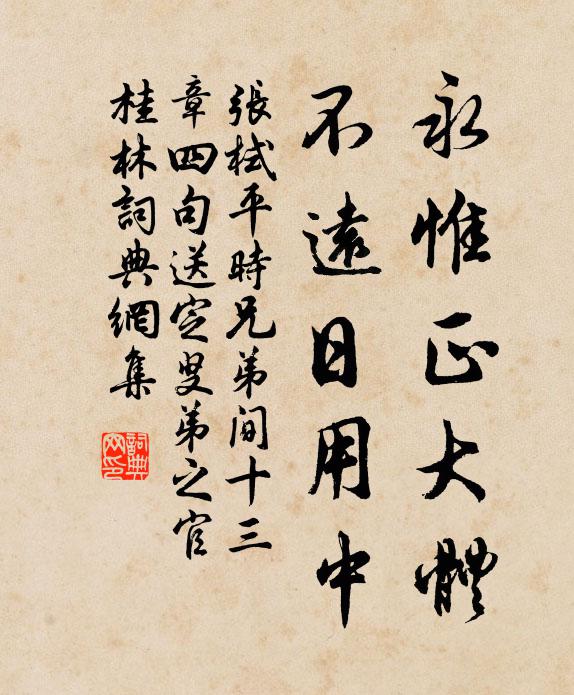 永惟正大體
不遠日用中
張栻平時兄弟間十三
章四句送定叟弟之官
桂林詞典網集
詞典
网印